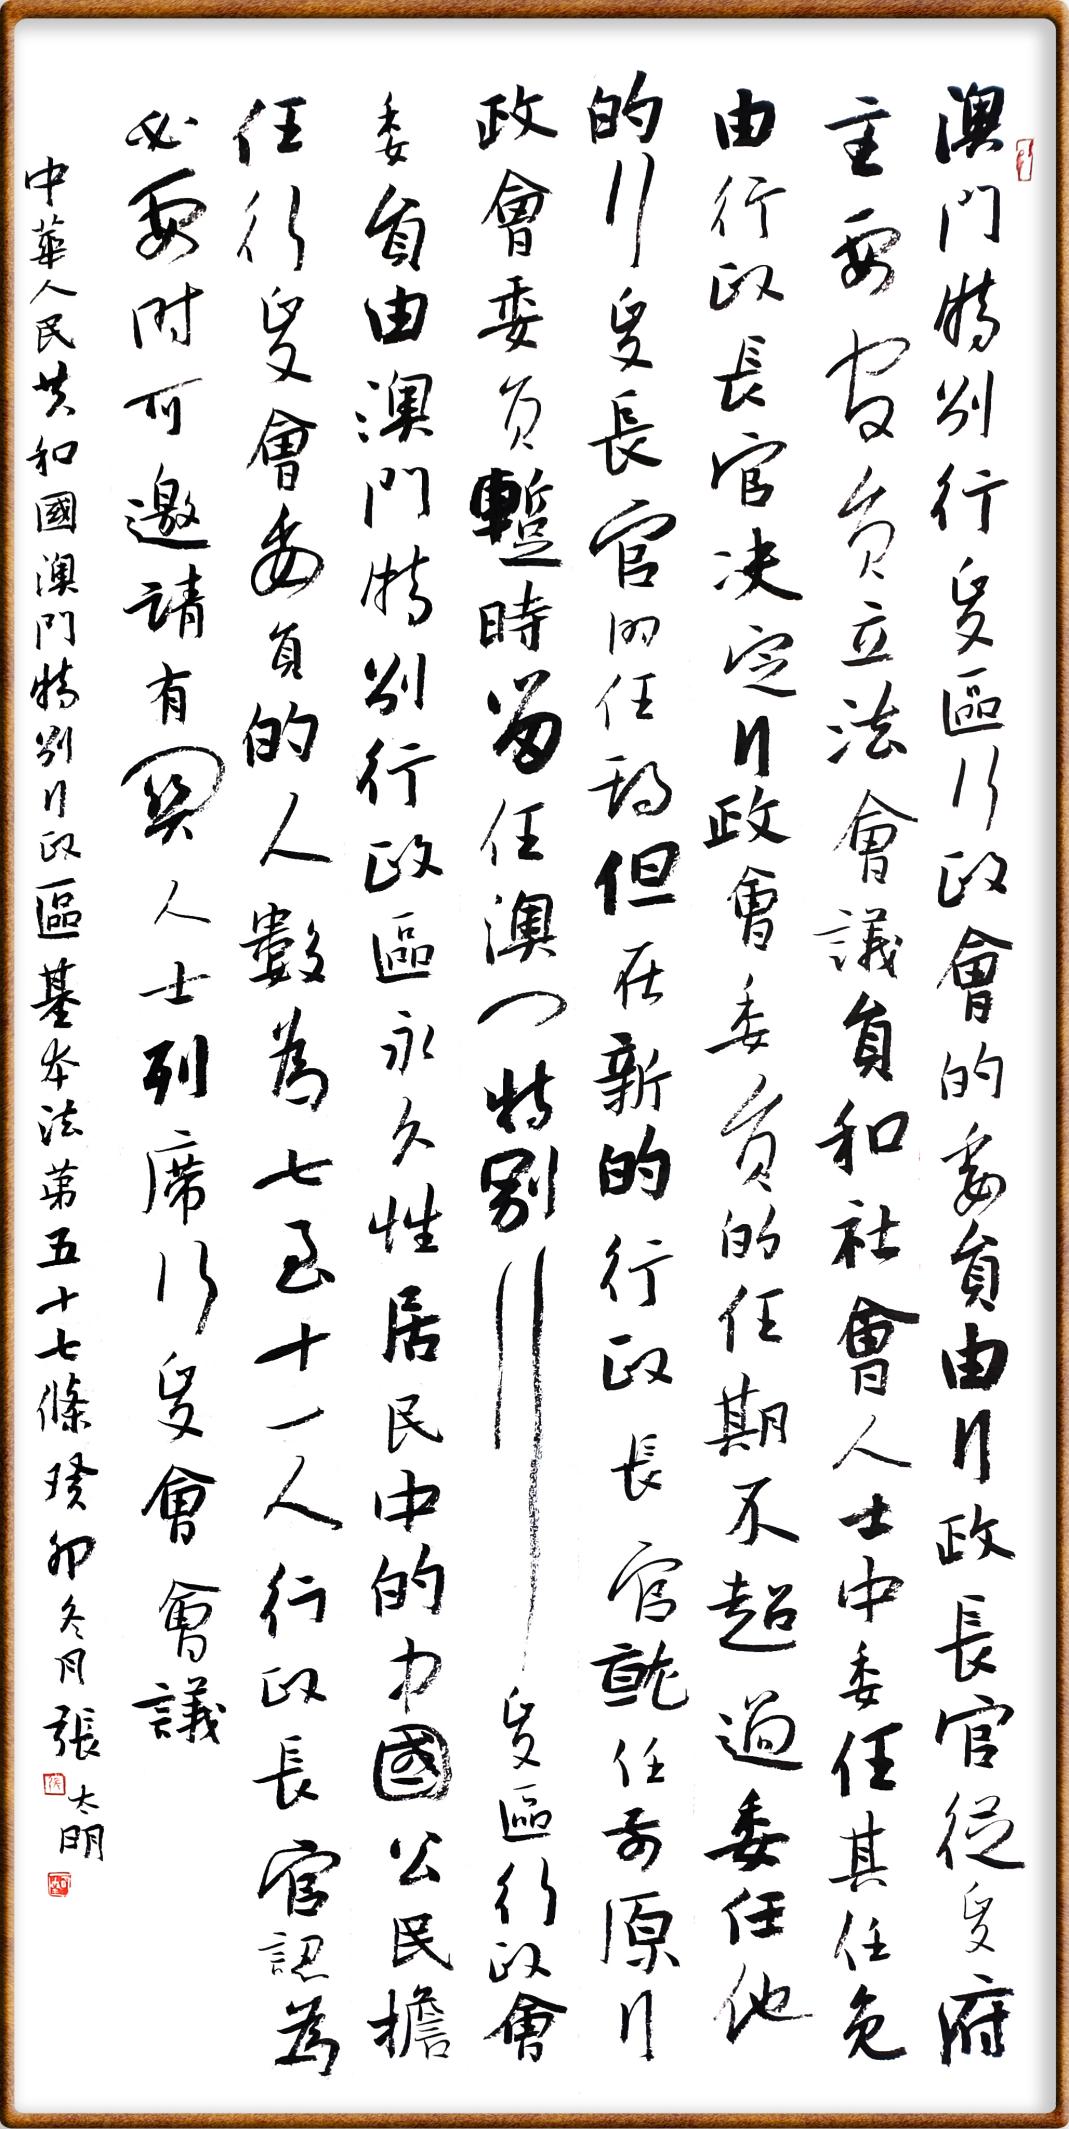 澳門特別行政區行政會的委員由行政長官從政府
主要官員立法會議員和社會人士中委任其任免
由行政長官決定行政會委員的任期不超過委任他
的行政長官的任期但在新的行政長官就任前原行
政會委員暫時留任澳門特別行政區行政會
委員由澳門特別行政區永久性居民中的中國公民擔
任行政會委員的人數為七至十一人行政長官認為
必要時可邀請有關人士列席行政會會議
中華人民共和國澳門特別行政區基本法第五十七條癸卯冬月張太明